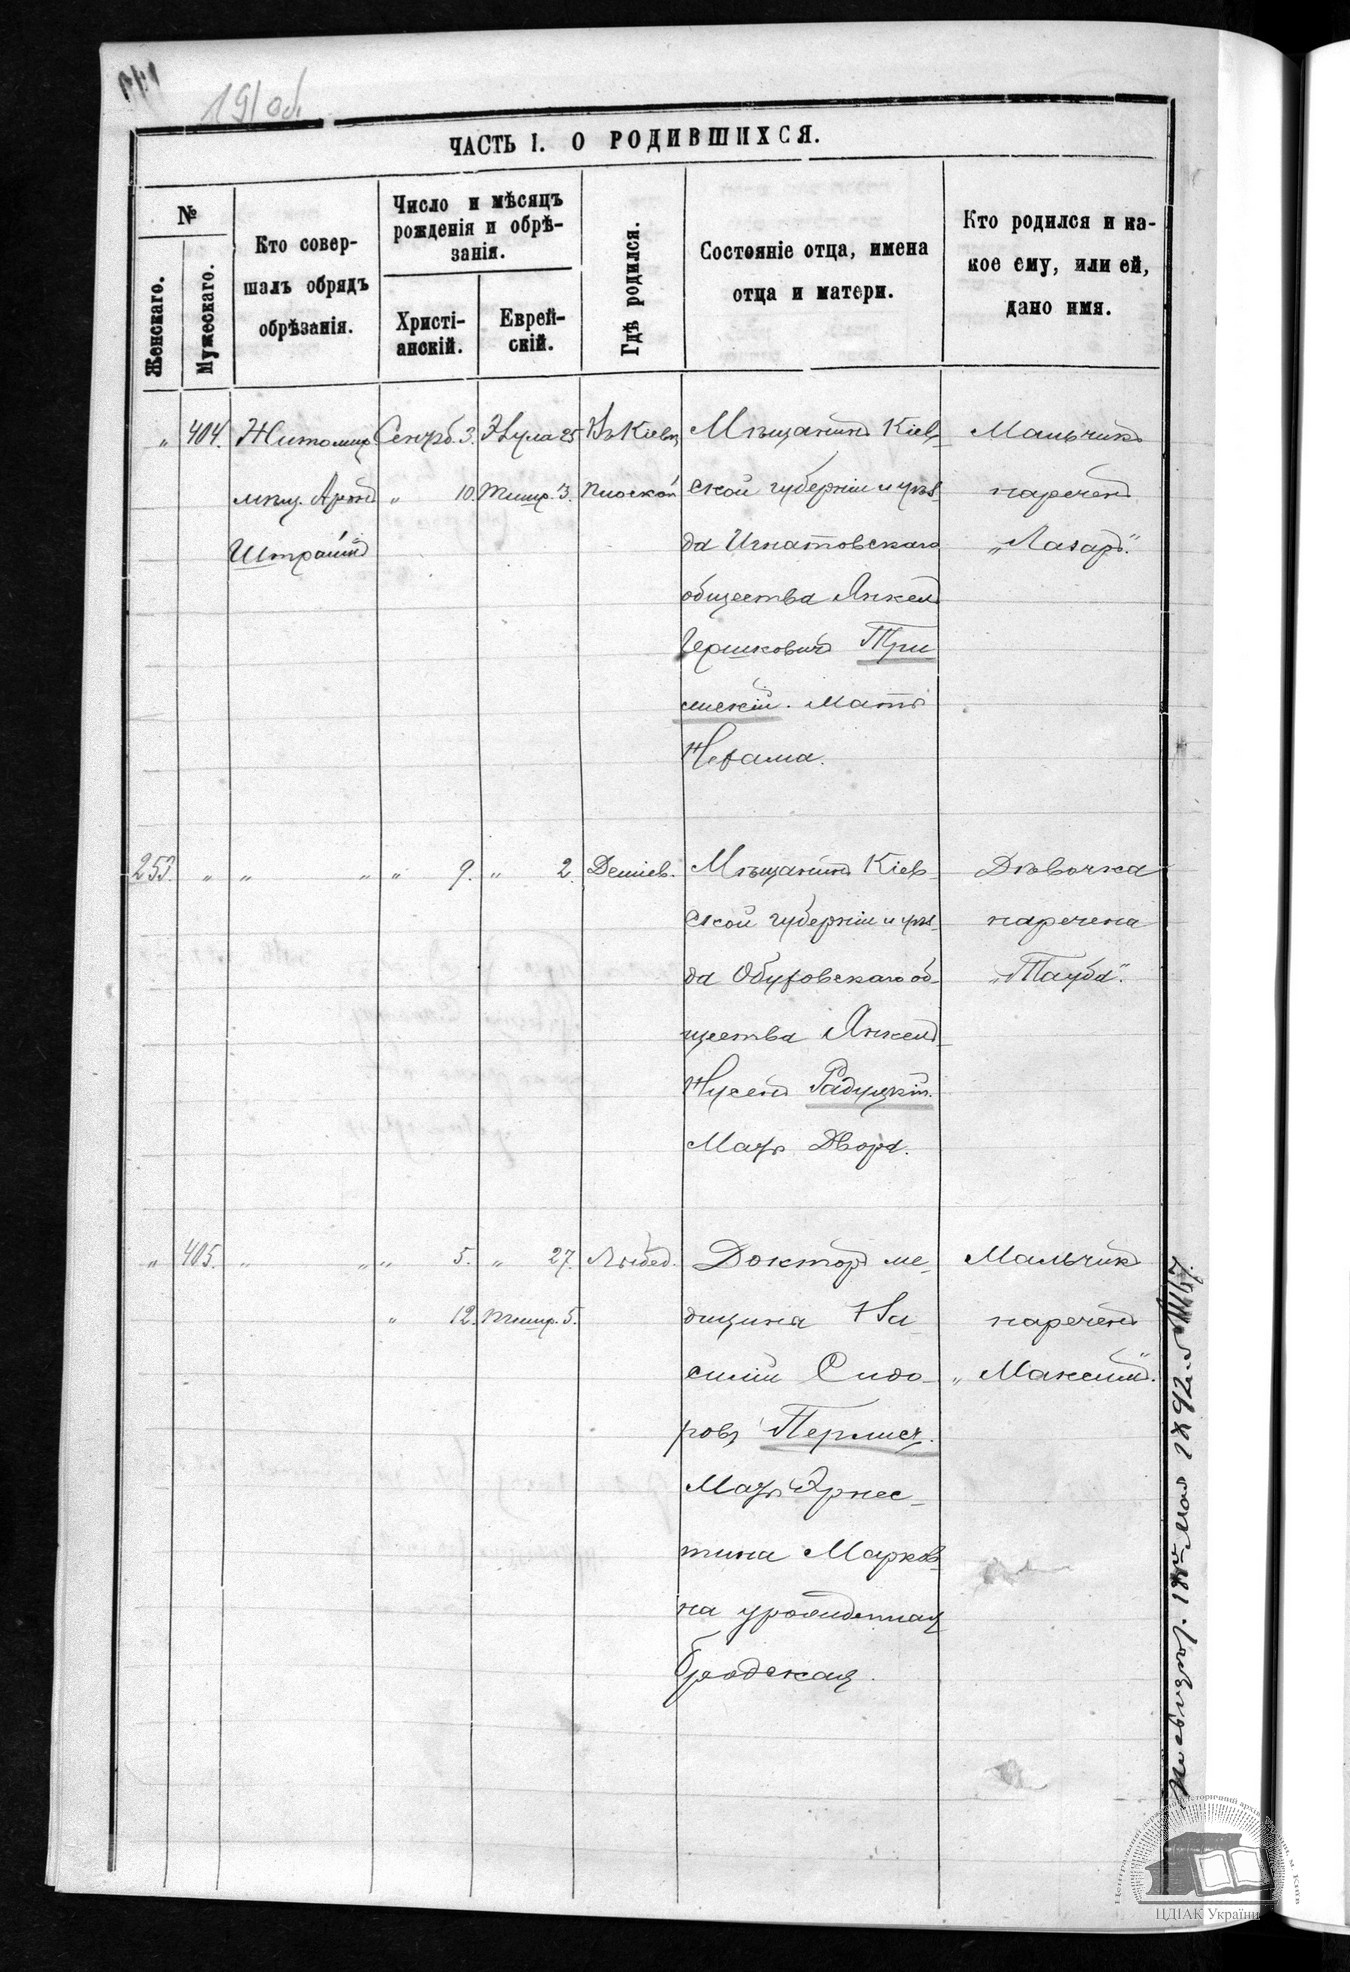 191 об.
ЧАСТЬ I. О РОДИВШИХСЯ.
№
Женскаго.
Мужескаго.
Кто совер-
шалъ обрядъ
обрѣзанія.
Число и мѣсяцъ
рожденія и обрѣ-
занія.
Христі-
анскій.
Еврей-
скій.
Гдѣ родился.
Состояніе отца, имена
отца и матери.
Кто родился и ка-
кое ему, или ей,
дано имя.
„ 404. Житомир. Сентяб. 3. Элула 25 Въ Кіевѣ Мѣщанинъ Кіев-
мѣщ. Аронъ „ 10. Тишр. 3. Плоской ской губерніи и уѣз-
Штраймъ да Игнатовскаго
общества Янкель
Гершковичъ Три-
лискій. Мать
Нехама.
Мальчикъ
нареченъ
„Лазарь."
253. „ „ „ „ 9. „ 2. Деміев. Мѣщанинъ Кіев-
ской губерніи и уѣз-
да Обуховскаго об-
щества Янкель-
Нусенъ Радуцкій.
Мать Двора.
Дѣвочка
наречена
„Тауба".
„ 405. „ „ „ 5. „ 27. Лыбед. Докторъ ме-
„ 12. Тишр. 5. дицины Ва-
силій Сидо-
ровъ Перлис.
Мать Эрнес-
тина Марков-
на урожденная
Бродская.
Мальчикъ
нареченъ
„Максимъ".
мая 1892
ЦДІАК України